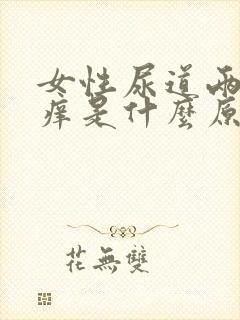 女性尿道兩
痒是什麼原
花無雙